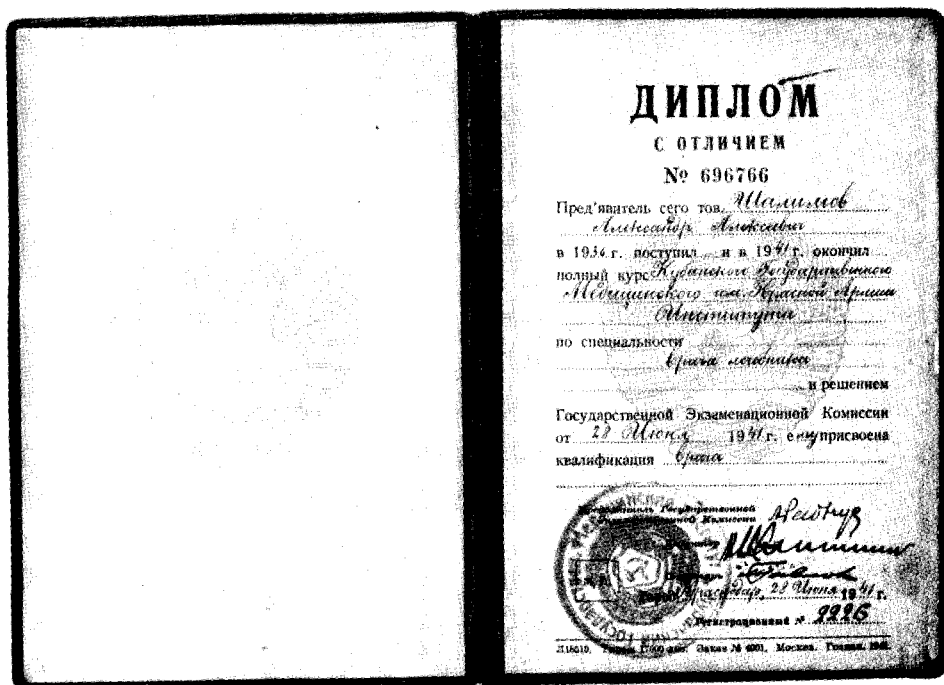 ДИПЛОМ
С ОТЛИЧИЕМ
№ 696766
Пред'явитель сего тов. Шалимов
Александр Алексеевич
в 1936 г. поступил и в 1941 г. окончил
полный курс Кубанского Государственного
Медицинского им. Красной Армии
Института
по специальности
врача лечебника
и решением
Государственной Экзаменационной Комиссии
от 28 Июня 1941 г. ему присвоена
квалификация врача
Государственной
Комиссии
Краснодар, 28 Июня 1941 г.
Регистрационный № 2226
Заказ № 4001, Москва, Гознак,